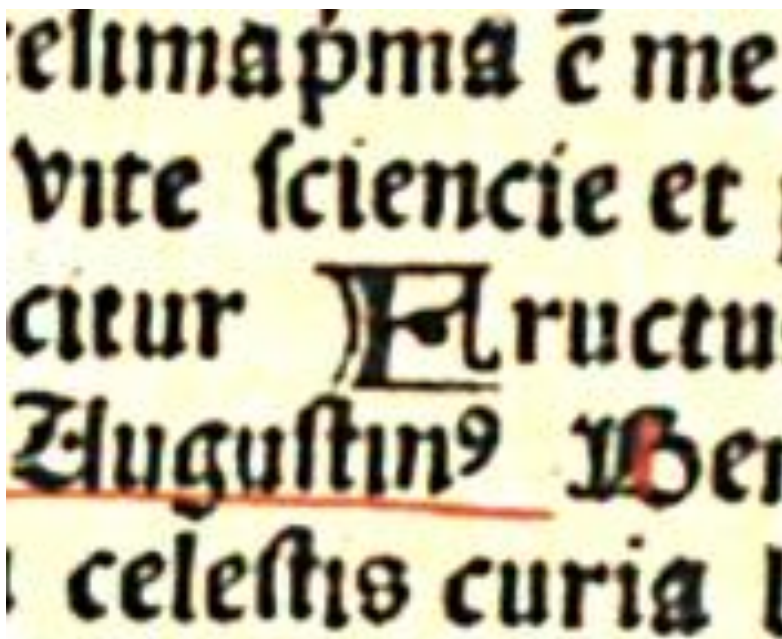 elima pṁa c̄ me
vite ſciencie et
citur Eructu
Auguſtinꝰ Ben
celeſtis curia